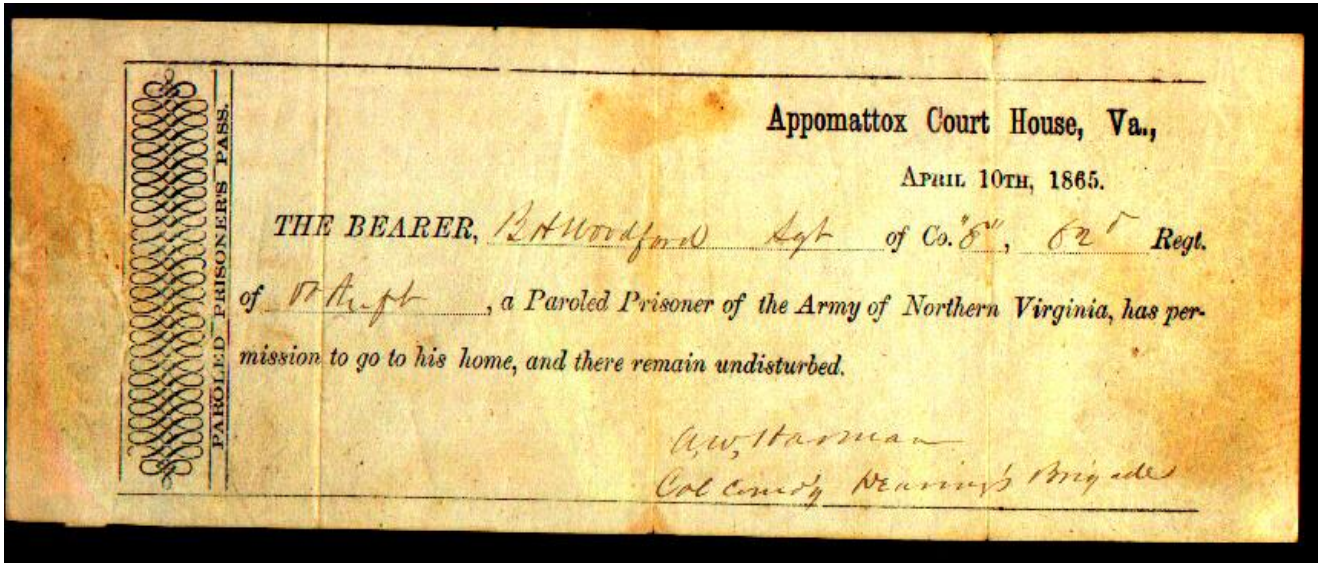 PAROLED PRISONER'S PASS.
Appomattox Court House, Va.,
APRIL 10TH, 1865.
THE BEARER, B H Woodford Sgt of Co. , 62d Regt.
of , a Paroled Prisoner of the Army of Northern Virginia, has per-
mission to go to his home, and there remain undisturbed.
A. W. Harman
Col Comd'g Dearing's Brigade